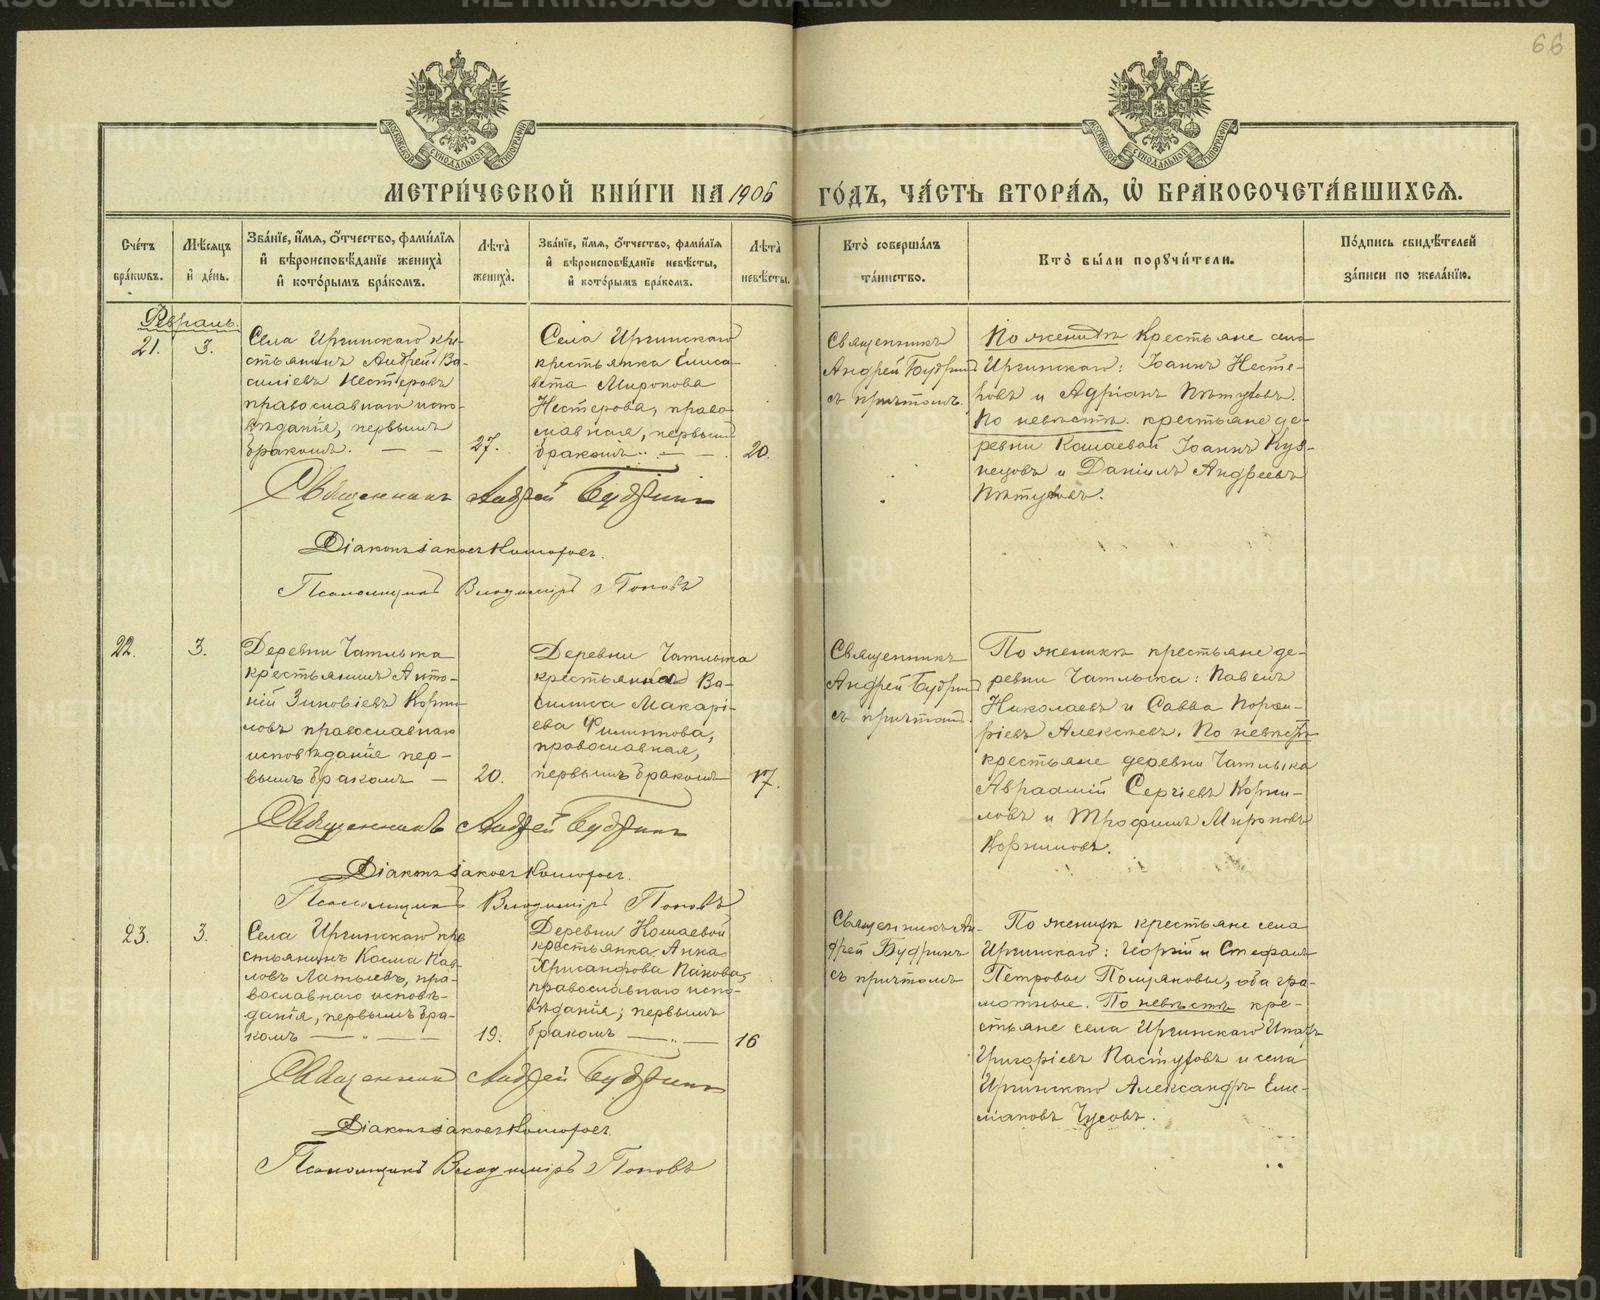 66
МОСКОВСКОЙ СѴНОДАЛЬНОЙ ТИПОГРАФІИ
МОСКОВСКОЙ СѴНОДАЛЬНОЙ ТИПОГРАФІИ
МЕТРИ́ЧЕСКОЙ КНИ́ГИ НА 1906 ГО́ДЪ, ЧА́СТЬ ВТОРА́Я, Ѡ БРАКОСОЧЕТА́ВШИХСЯ.
Сче́тъ бра́кѡвъ.
Мѣ́сяцъ и҆ де́нь.
Зва́нїе, и҆́мя, ѻ҆́тчество, фами́лїя и҆ вѣроисповѣ́данїе жениха̀ и҆ кото́рымъ бра́комъ.
Лѣта̀ жениха̀.
Зва́нїе, и҆́мя, ѻ҆́тчество, фами́лїя и҆ вѣроисповѣ́данїе невѣ́сты, и҆ кото́рымъ бра́комъ.
Лѣта̀ невѣ́сты.
Кто̀ соверша́лъ та́инство.
Кто̀ бы́ли порꙋчи́тели.
По́дпись свидѣ́телей за́писи по жела́нїю.
Февраль.
21.
3.
Села Иргинскаго кре-
стьянинъ Андрей Ва-
силіевъ Нестеровъ
православнаго испо-
вѣданія, первымъ
бракомъ. — —
27.
Села Иргинскаго
крестьянка Елиса-
вета Миронова
Нестерова, право-
славная, первымъ
бракомъ. — —
20.
Священникъ
Андрей Будринъ
съ причтомъ.
По женихѣ крестьяне села
Иргинскаго: Іоаннъ Несте-
ровъ и Адріанъ Пѣтуховъ.
По невѣстѣ крестьяне де-
ревни Кошаевой Іоаннъ Куз-
нецовъ и Даніилъ Андреевъ
Пѣтуховъ.
Священникъ Андрей Будринъ
Діаконъ Іаковъ
Псаломщикъ Владиміръ Поповъ
22.
3.
Деревни Чатлыка
крестьянинъ Анто-
ній Зиновіевъ Корми-
ловъ православнаго
исповѣданія пер-
вымъ бракомъ —
20.
Деревни Чатлыка
крестьянка Ва-
силиса Макарі-
ева Филиппова,
православная,
первымъ бракомъ
17.
Священникъ
Андрей Будринъ
съ причтомъ.
По женихѣ крестьяне де-
ревни Чатлыка: Павелъ
Николаевъ и Савва Порфи-
ріевъ Алексѣевъ. По невѣстѣ
крестьяне деревни Чатлыка
Авраамій Сергіевъ Корми-
ловъ и Трофимъ Мироновъ
Кормиловъ.
Священникъ Андрей Будринъ
Діаконъ Іаковъ
Псаломщикъ Владиміръ Поповъ
23.
3.
Села Иргинскаго кре
стьянинъ Косма Пав-
ловъ Латышевъ, пра-
вославнаго исповѣ-
данія, первымъ бра-
комъ — „ —
19.
Деревни Кошаевой
крестьянка Анна
Хрисанфова Панова,
православнаго испо-
вѣданія; первымъ
бракомъ — „ —
16
Священникъ Ан-
дрей Будринъ
съ причтомъ
По женихѣ крестьяне села
Иргинскаго: Георгій и Стефанъ
Петровы Полуяновы, оба гра-
мотные. По невѣстѣ кре-
стьяне села Иргинскаго
Григоріевъ Пастуховъ и села
Иргинскаго Александръ Еме-
ліановъ Чусовъ.
Священникъ Андрей Будринъ
Діаконъ Іаковъ
Псаломщикъ Владиміръ Поповъ
METRIKI.GASO-URAL.RU